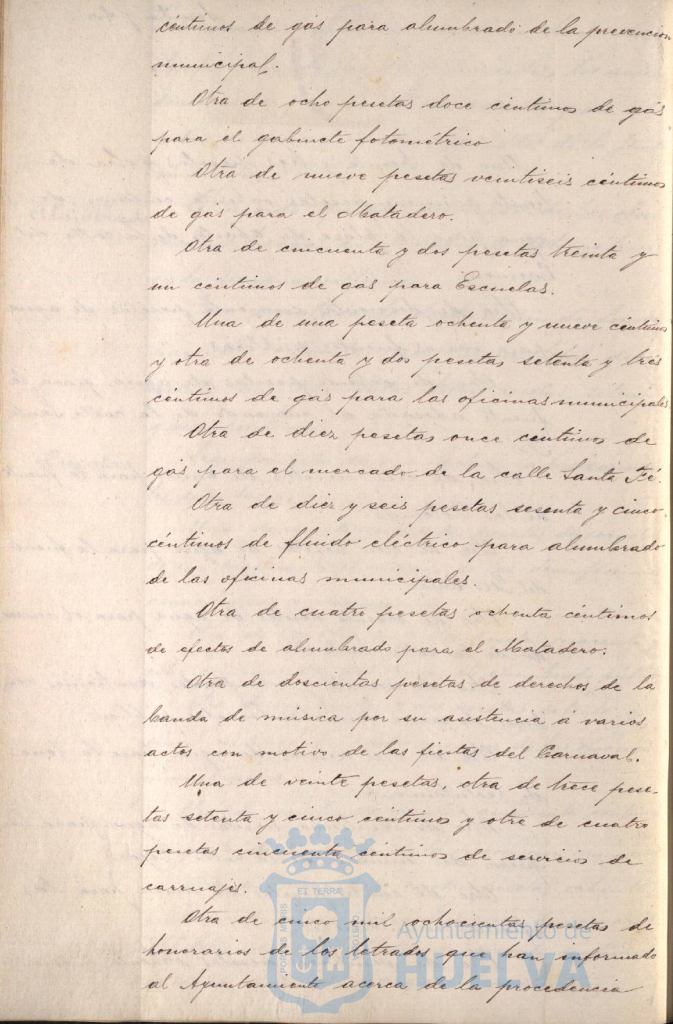 céntimos de gas para alumbrado de la prevencion
municipal.
Otra de ocho pesetas doce céntimos de gas
para el gabinete fotométrico
Otra de nueve pesetas veintiseis céntimos
de gas para el Matadero.
Otra de cincuenta y dos pesetas treinta y
un céntimos de gas para Escuelas.
Una de una peseta ochenta y nueve céntimos
y otra de ochenta y dos pesetas setenta y tres
céntimos de gas para las oficinas municipales
Otra de diez pesetas once céntimos de
gas para el mercado de la calle Santa Fé.
Otra de diez y seis pesetas sesenta y cinco
céntimos de fluido eléctrico para alumbrado
de las oficinas municipales.
Otra de cuatro pesetas ochenta céntimos
de efectos de alumbrado para el Matadero.
Otra de doscientas pesetas de derechos de la
banda de música por su asistencia á varios
actos con motivo de las fiestas del Carnaval.
Una de veinte pesetas, otra de trece pese-
tas setenta y cinco céntimos y otra de cuatro
pesetas cincuenta céntimos de servicios de
carruajes.
Otra de cinco mil ochocientas pesetas de
honorarios de los letrados que han informado
al Ayuntamiento acerca de la procedencia
PORTUS MARIS
ET TERRÆ
CUSTODIA
Ayuntamiento de
HUELVA